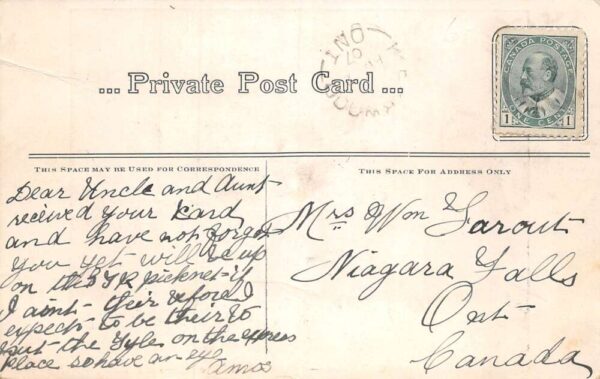 ... Private Post Card ...
ONT
07
CANADA POSTAGE
1 ONE CENT 1
THIS SPACE MAY BE USED FOR CORRESPONDENCE
THIS SPACE FOR ADDRESS ONLY
Dear Uncle and Aunt
received your Kard
and have not forgot
you yet will be up
on the picknet if
I aint their before I
expect to be their to
put the on the express
place so have an eye
amos
Mrs Wm
Niagara Falls
Ont
Canada